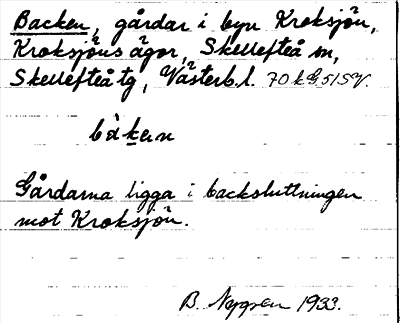 Backen, gårdar i byn Kroksjön,
Kroksjöns ägor, Skellefteå sn,
Skellefteå tg, Västerb.l. 70 k G 5151 V.
bàḵen
Gårdarna ligga i backsluttningen
mot Kroksjön.
B. Nygren 1933.